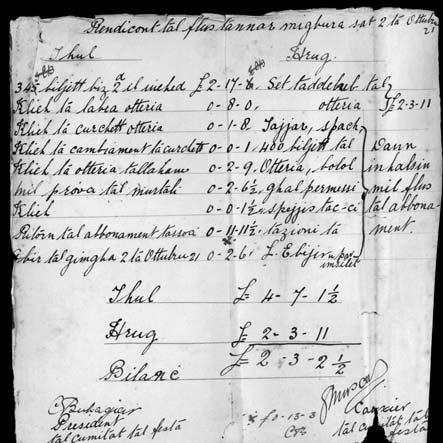 Rendicont tal flus tannar migbura sat 2 ta Ottubru 21
Thul Hrug
345 biljett biz 2d il wiehed £ 2-17-8 Set taddebeb tal
Klieb ta labra otteria 0-8-0, otteria £ 2-3-11
Klieb ta curchett otteria 0-1-8 Tajjar, spach,
Klieb ta cambiament ta curchett 0-0-1, 400 biljett tal Dawn
Klieb ta otteria tallaham 0-2-9. Otteria, bolol inhalsin
mil prova tal murtali 0-2-6½, ghal permessi mil flus
Klieb 0-0-1½ spejjis tac-ci tal abbona-
Ritorn tal abbonament tassoci 0-11-11½ tazioni ta ment.
Gbir tal gimgha 2 ta Ottubru 21 0-2-6.
Thul £ 4-7-1½
Hrug £ 2-3-11
Bilanc £ 2-3-2½
President
tal cumitat tal festa
£ 0-13-3
Canxier
tal cumitat tal festa